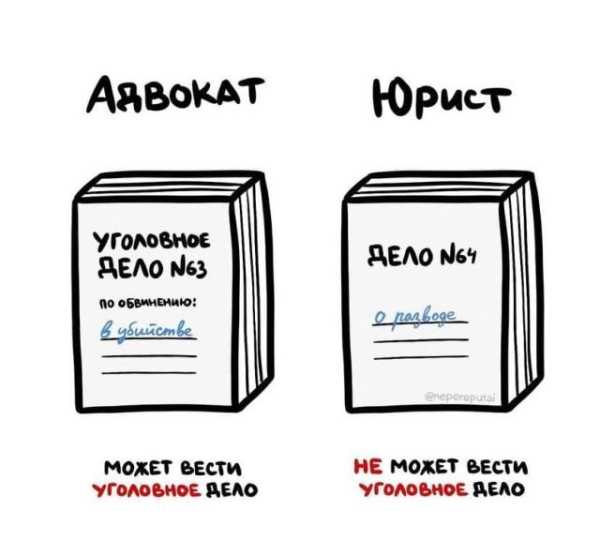 Адвокат
Юрист
Уголовное
дело №63
по обвинению:
в убийстве
Дело №64
о разводе
@nepereputai
может вести
уголовное дело
не может вести
уголовное дело